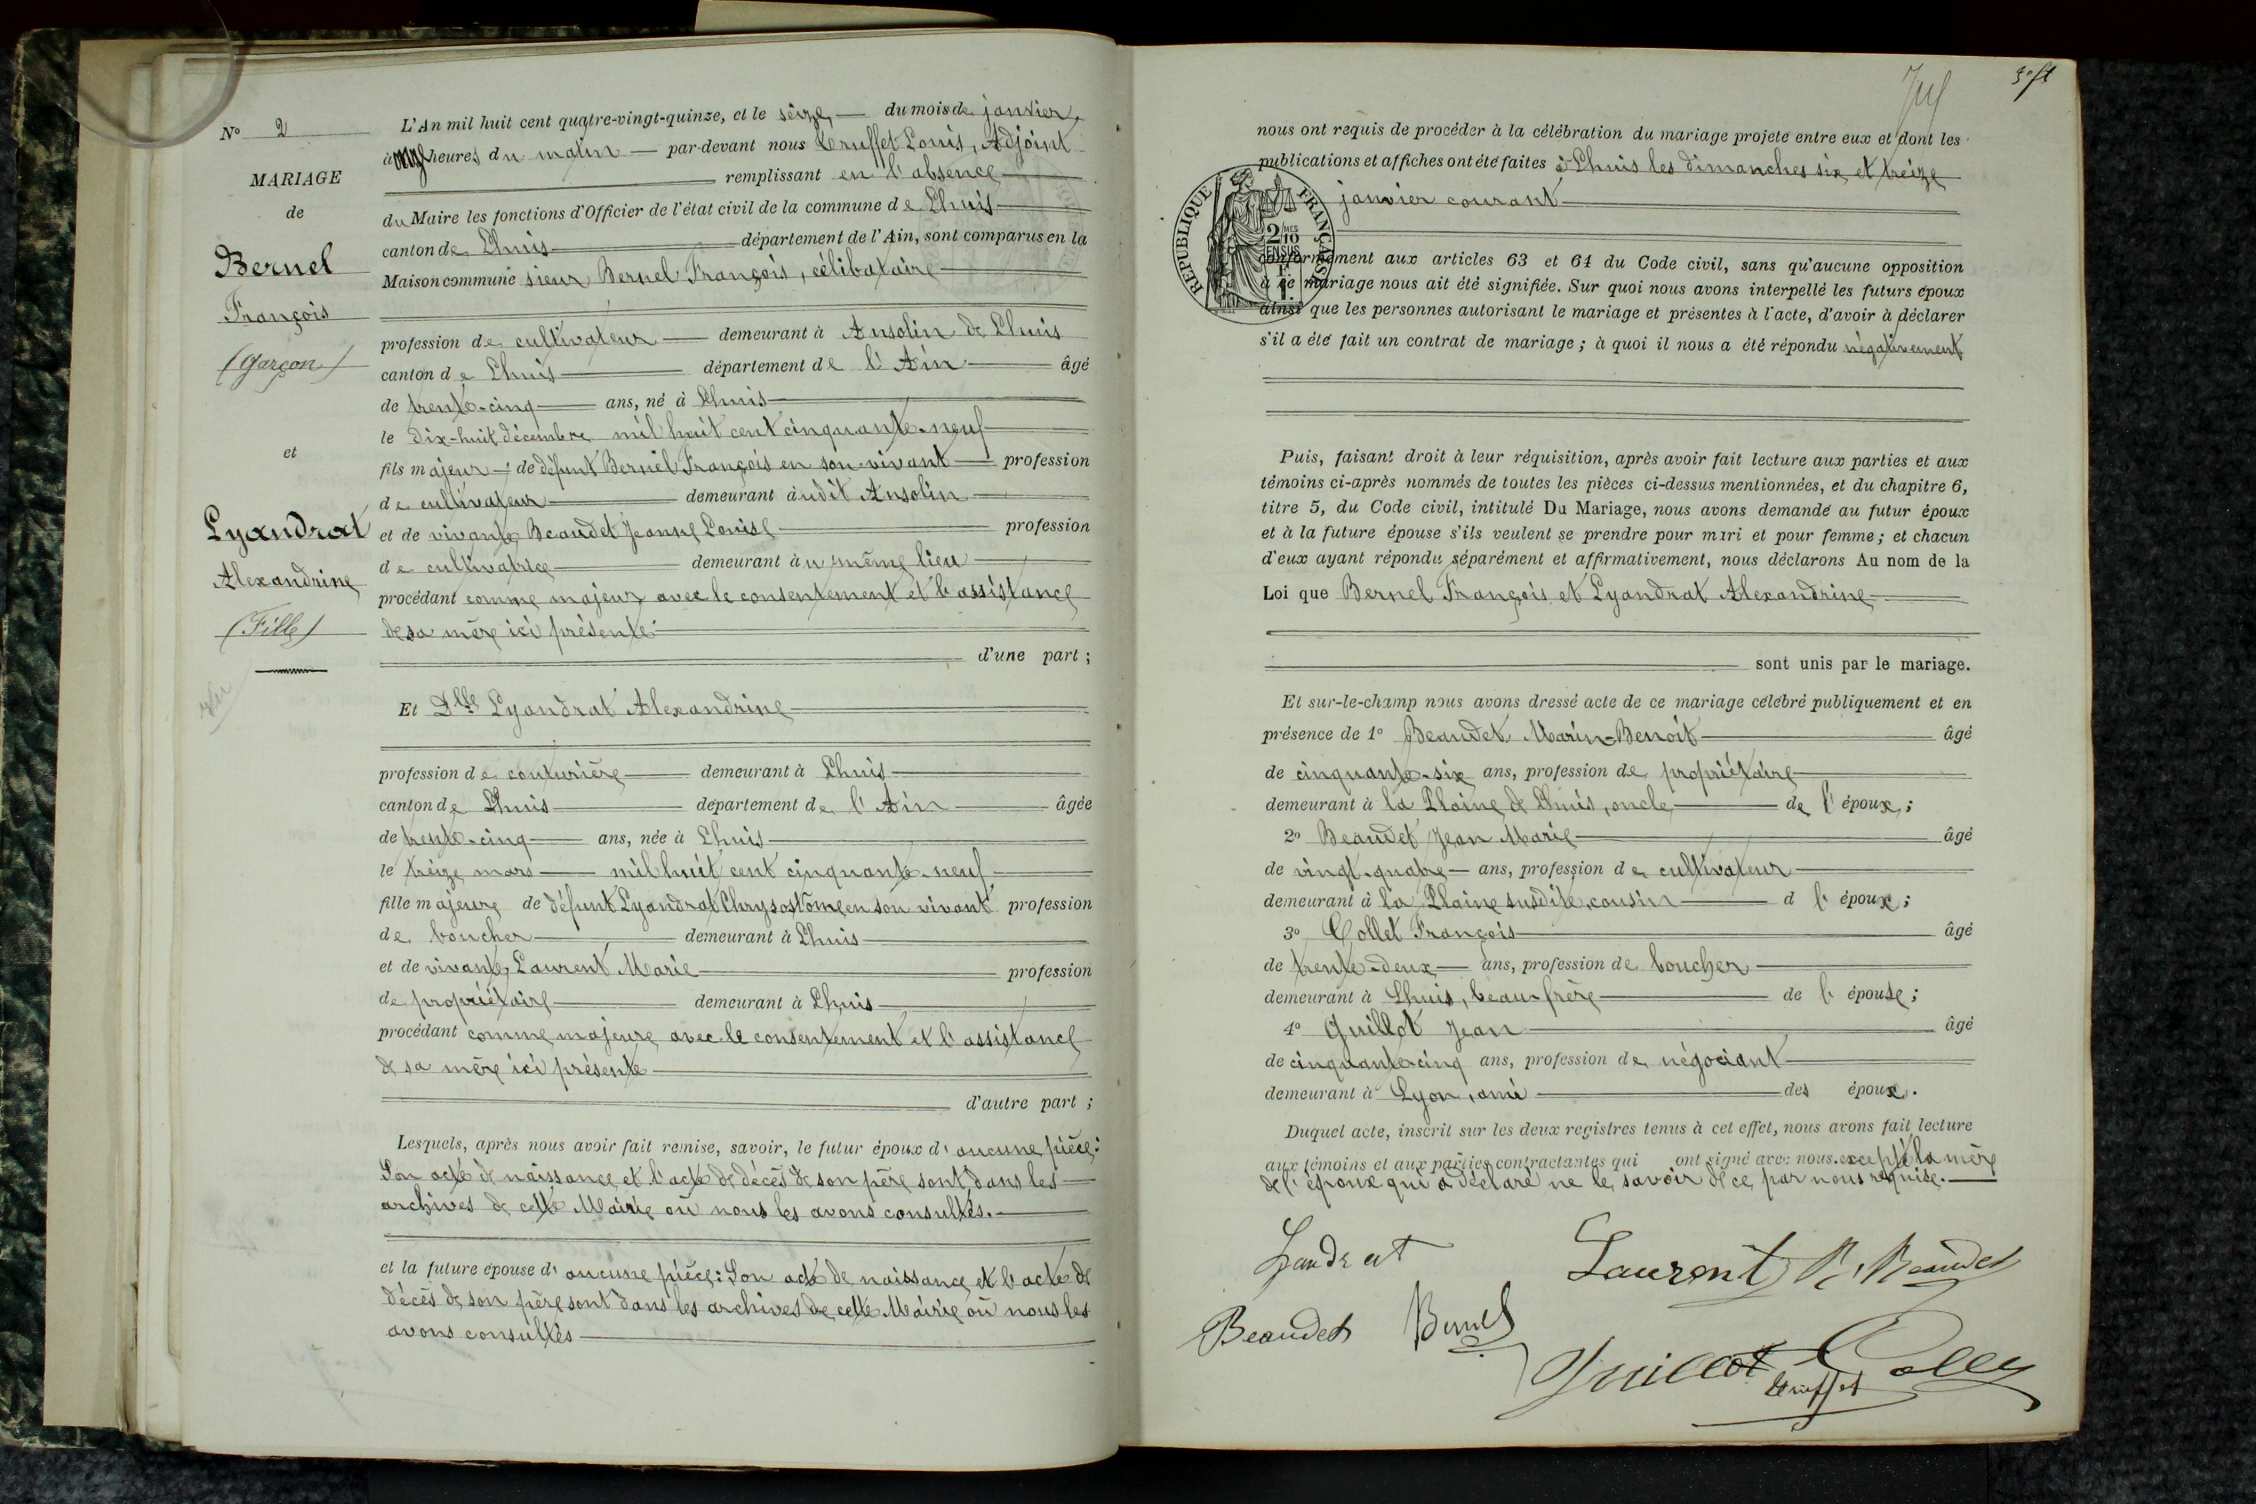 N° 2
MARIAGE
de
Bernel
François
(Garçon)
et
Lyandrat
Alexandrine
(Fille)
L'An mil huit cent quatre-vingt-quinze, et le seize du mois de janvier,
à onze heures du matin par-devant nous Truffet Louis, Adjoint
remplissant en l'absence
du Maire les fonctions d'Officier de l'état civil de la commune de Lhuis
canton de Lhuis département de l'Ain, sont comparus en la
Maison commune sieur Bernel François, célibataire
profession de cultivateur demeurant à Ansolin de Lhuis
canton de Lhuis département de l'Ain âgé
de trente-cinq ans, né à Lhuis
le dix-huit décembre mil huit cent cinquante-neuf
fils majeur de défunt Bernel François en son vivant profession
de cultivateur demeurant audit Ansolin
et de vivante Beaudet Jeanne Louise profession
de cultivatrice demeurant au même lieu
procédant comme majeur avec le consentement et l'assistance
de sa mère ici présente
d'une part ;
Et Dlle Lyandrat Alexandrine
profession de couturière demeurant à Lhuis
canton de Lhuis département de l'Ain âgée
de trente-cinq ans, née à Lhuis
le treize mars mil huit cent cinquante-neuf
fille majeure de défunt Lyandrat Chrysostôme en son vivant profession
de boucher demeurant à Lhuis
et de vivante Laurent Marie profession
de propriétaire demeurant à Lhuis
procédant comme majeure avec le consentement et l'assistance
de sa mère ici présente
d'autre part ;
Lesquels, après nous avoir fait remise, savoir, le futur époux d'aucune pièce:
Son acte de naissance et l'acte de décès de son père sont dans les
archives de cette Mairie où nous les avons consultés.
et la future épouse d'aucune pièce: Son acte de naissance et l'acte de
décès de son père sont dans les archives de cette Mairie où nous les
avons consultés
nous ont requis de procéder à la célébration du mariage projeté entre eux et dont les
publications et affiches ont été faites à Lhuis les dimanches six et treize
janvier courant
REPUBLIQUE FRANÇAISE
2/10 EN SUS
conformément aux articles 63 et 64 du Code civil, sans qu'aucune opposition
à ce mariage nous ait été signifiée. Sur quoi nous avons interpellé les futurs époux
ainsi que les personnes autorisant le mariage et présentes à l'acte, d'avoir à déclarer
s'il a été fait un contrat de mariage ; à quoi il nous a été répondu négativement
Puis, faisant droit à leur réquisition, après avoir fait lecture aux parties et aux
témoins ci-après nommés de toutes les pièces ci-dessus mentionnées, et du chapitre 6,
titre 5, du Code civil, intitulé Du Mariage, nous avons demandé au futur époux
et à la future épouse s'ils veulent se prendre pour mari et pour femme ; et chacun
d'eux ayant répondu séparément et affirmativement, nous déclarons Au nom de la
Loi que Bernel François et Lyandrat Alexandrine
sont unis par le mariage.
Et sur-le-champ nous avons dressé acte de ce mariage célébré publiquement et en
présence de 1° Beaudet Marin-Benoit âgé
de cinquante-six ans, profession de propriétaire
demeurant à la Plaine de Lhuis, oncle de l'époux ;
2° Beaudet Jean Marie âgé
de vingt-quatre ans, profession de cultivateur
demeurant à la Plaine susdite, cousin d l'époux ;
3° Collet François âgé
de trente-deux ans, profession de boucher
demeurant à Lhuis, beau-frère de l'épouse ;
4° Guillot Jean âgé
de cinquante-cinq ans, profession de négociant
demeurant à Lyon, ami des époux.
Duquel acte, inscrit sur les deux registres tenus à cet effet, nous avons fait lecture
aux témoins et aux parties contractantes qui ont signé avec nous excepté la mère
de l'époux qui a déclaré ne le savoir de ce par nous requise.
Laurent Beaudet
Beaudet Bernel
Guillot
Truffet